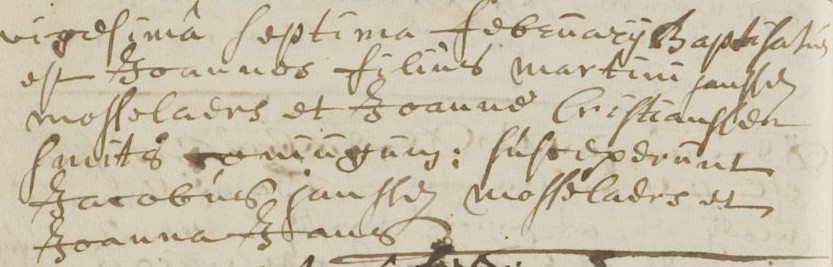 vigesimâ septima februarij Baptisatus
est Joannes filius martini janssen
mosselaers et Joanne Cristianssen
smits coniugum: susceperunt
Jacobus janssen mosselaers et
Joanna Jans